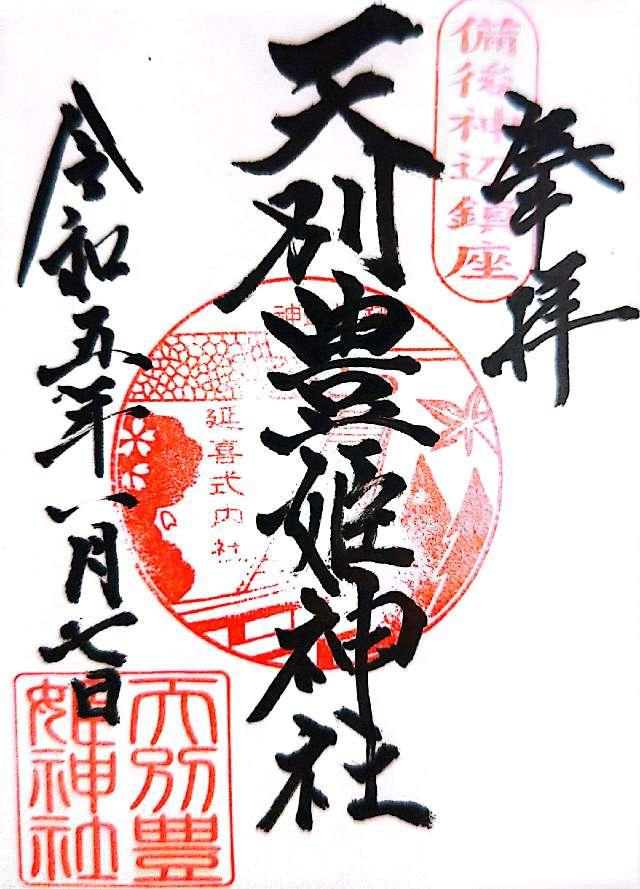 奉拝
備後神辺鎮座
天別豊姫神社
延喜式内社
令和五年一月七日
天別豊
姫神社